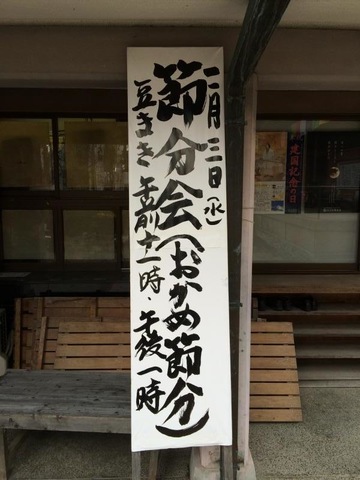 二月三日(水)
節分会(おかめ節分)
豆まき 午前十一時・午後一時
建国記念の日